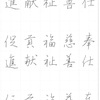 仕奉仕
善慈善
祉福祉
献貢献
進促進